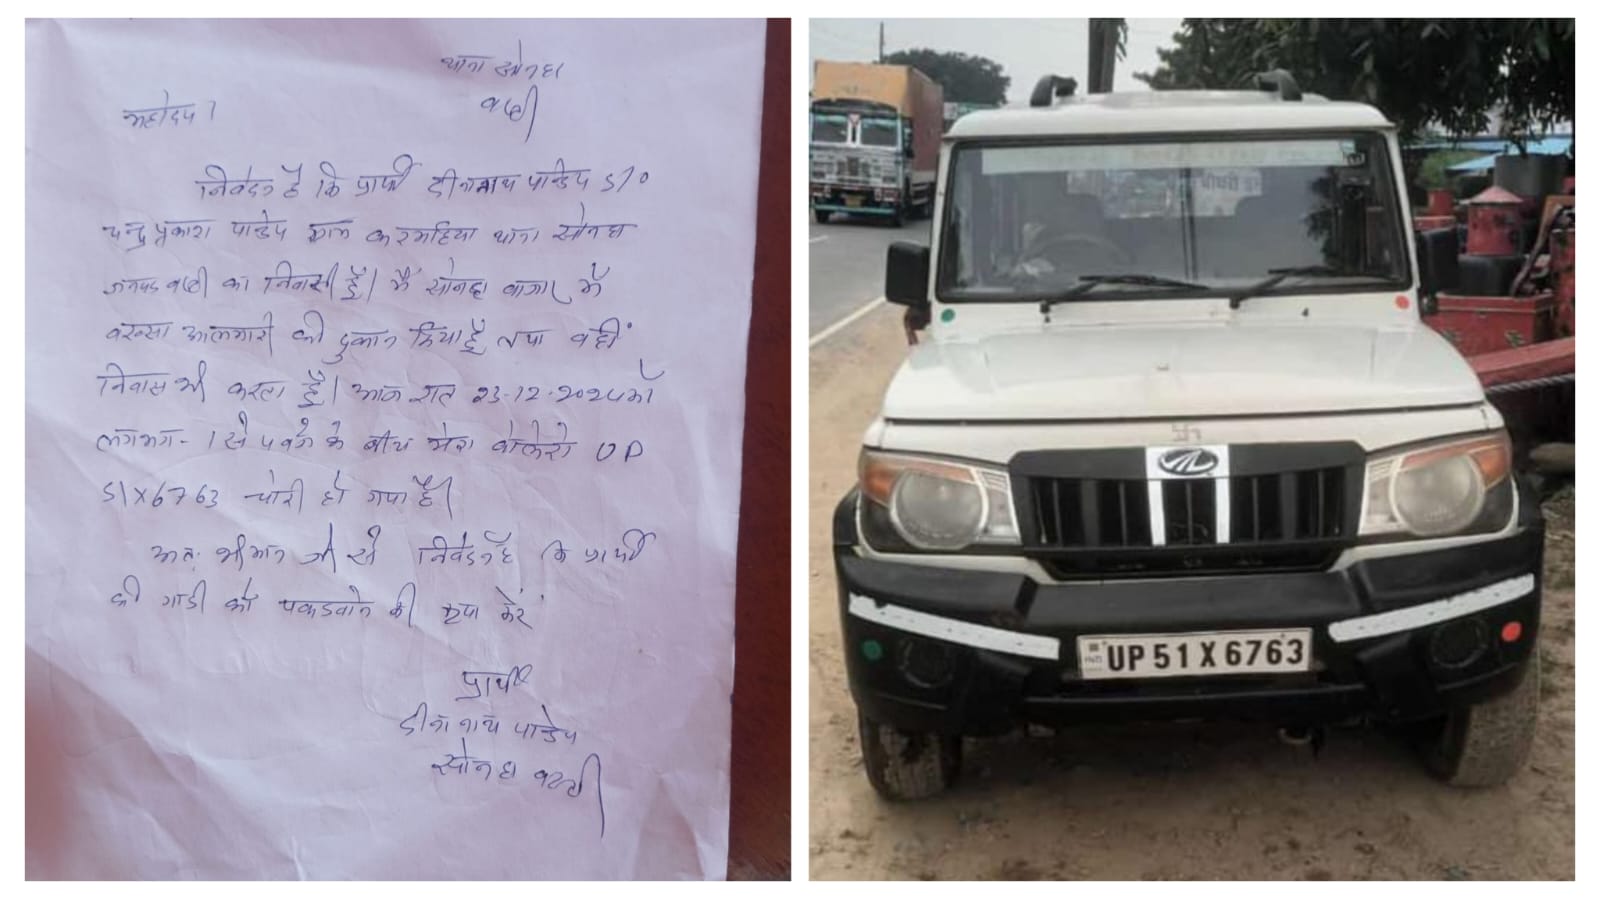 थाना सोनहा
बस्ती
महोदय।
निवेदन है कि प्रार्थी दीनानाथ पाण्डेय S/O
चन्द्र प्रकाश पाण्डेय ग्राम करमहिया थाना सोनहा
जनपद बस्ती का निवासी हूँ। मैं सोनहा बाजार में
बक्सा आलमारी की दुकान किया हूँ तथा वहीं
निवास भी करता हूँ। आज रात 23-12-2024 को
लगभग - 1 से 4 बजे के बीच मेरा बोलेरो UP
51X6763 चोरी हो गया है।
अतः श्रीमान जी से निवेदन है कि प्रार्थी
की गाडी को पकडवाने की कृपा करें
प्रार्थी
दीनानाथ पाण्डेय
सोनहा बस्ती
IND
UP 51 X 6763